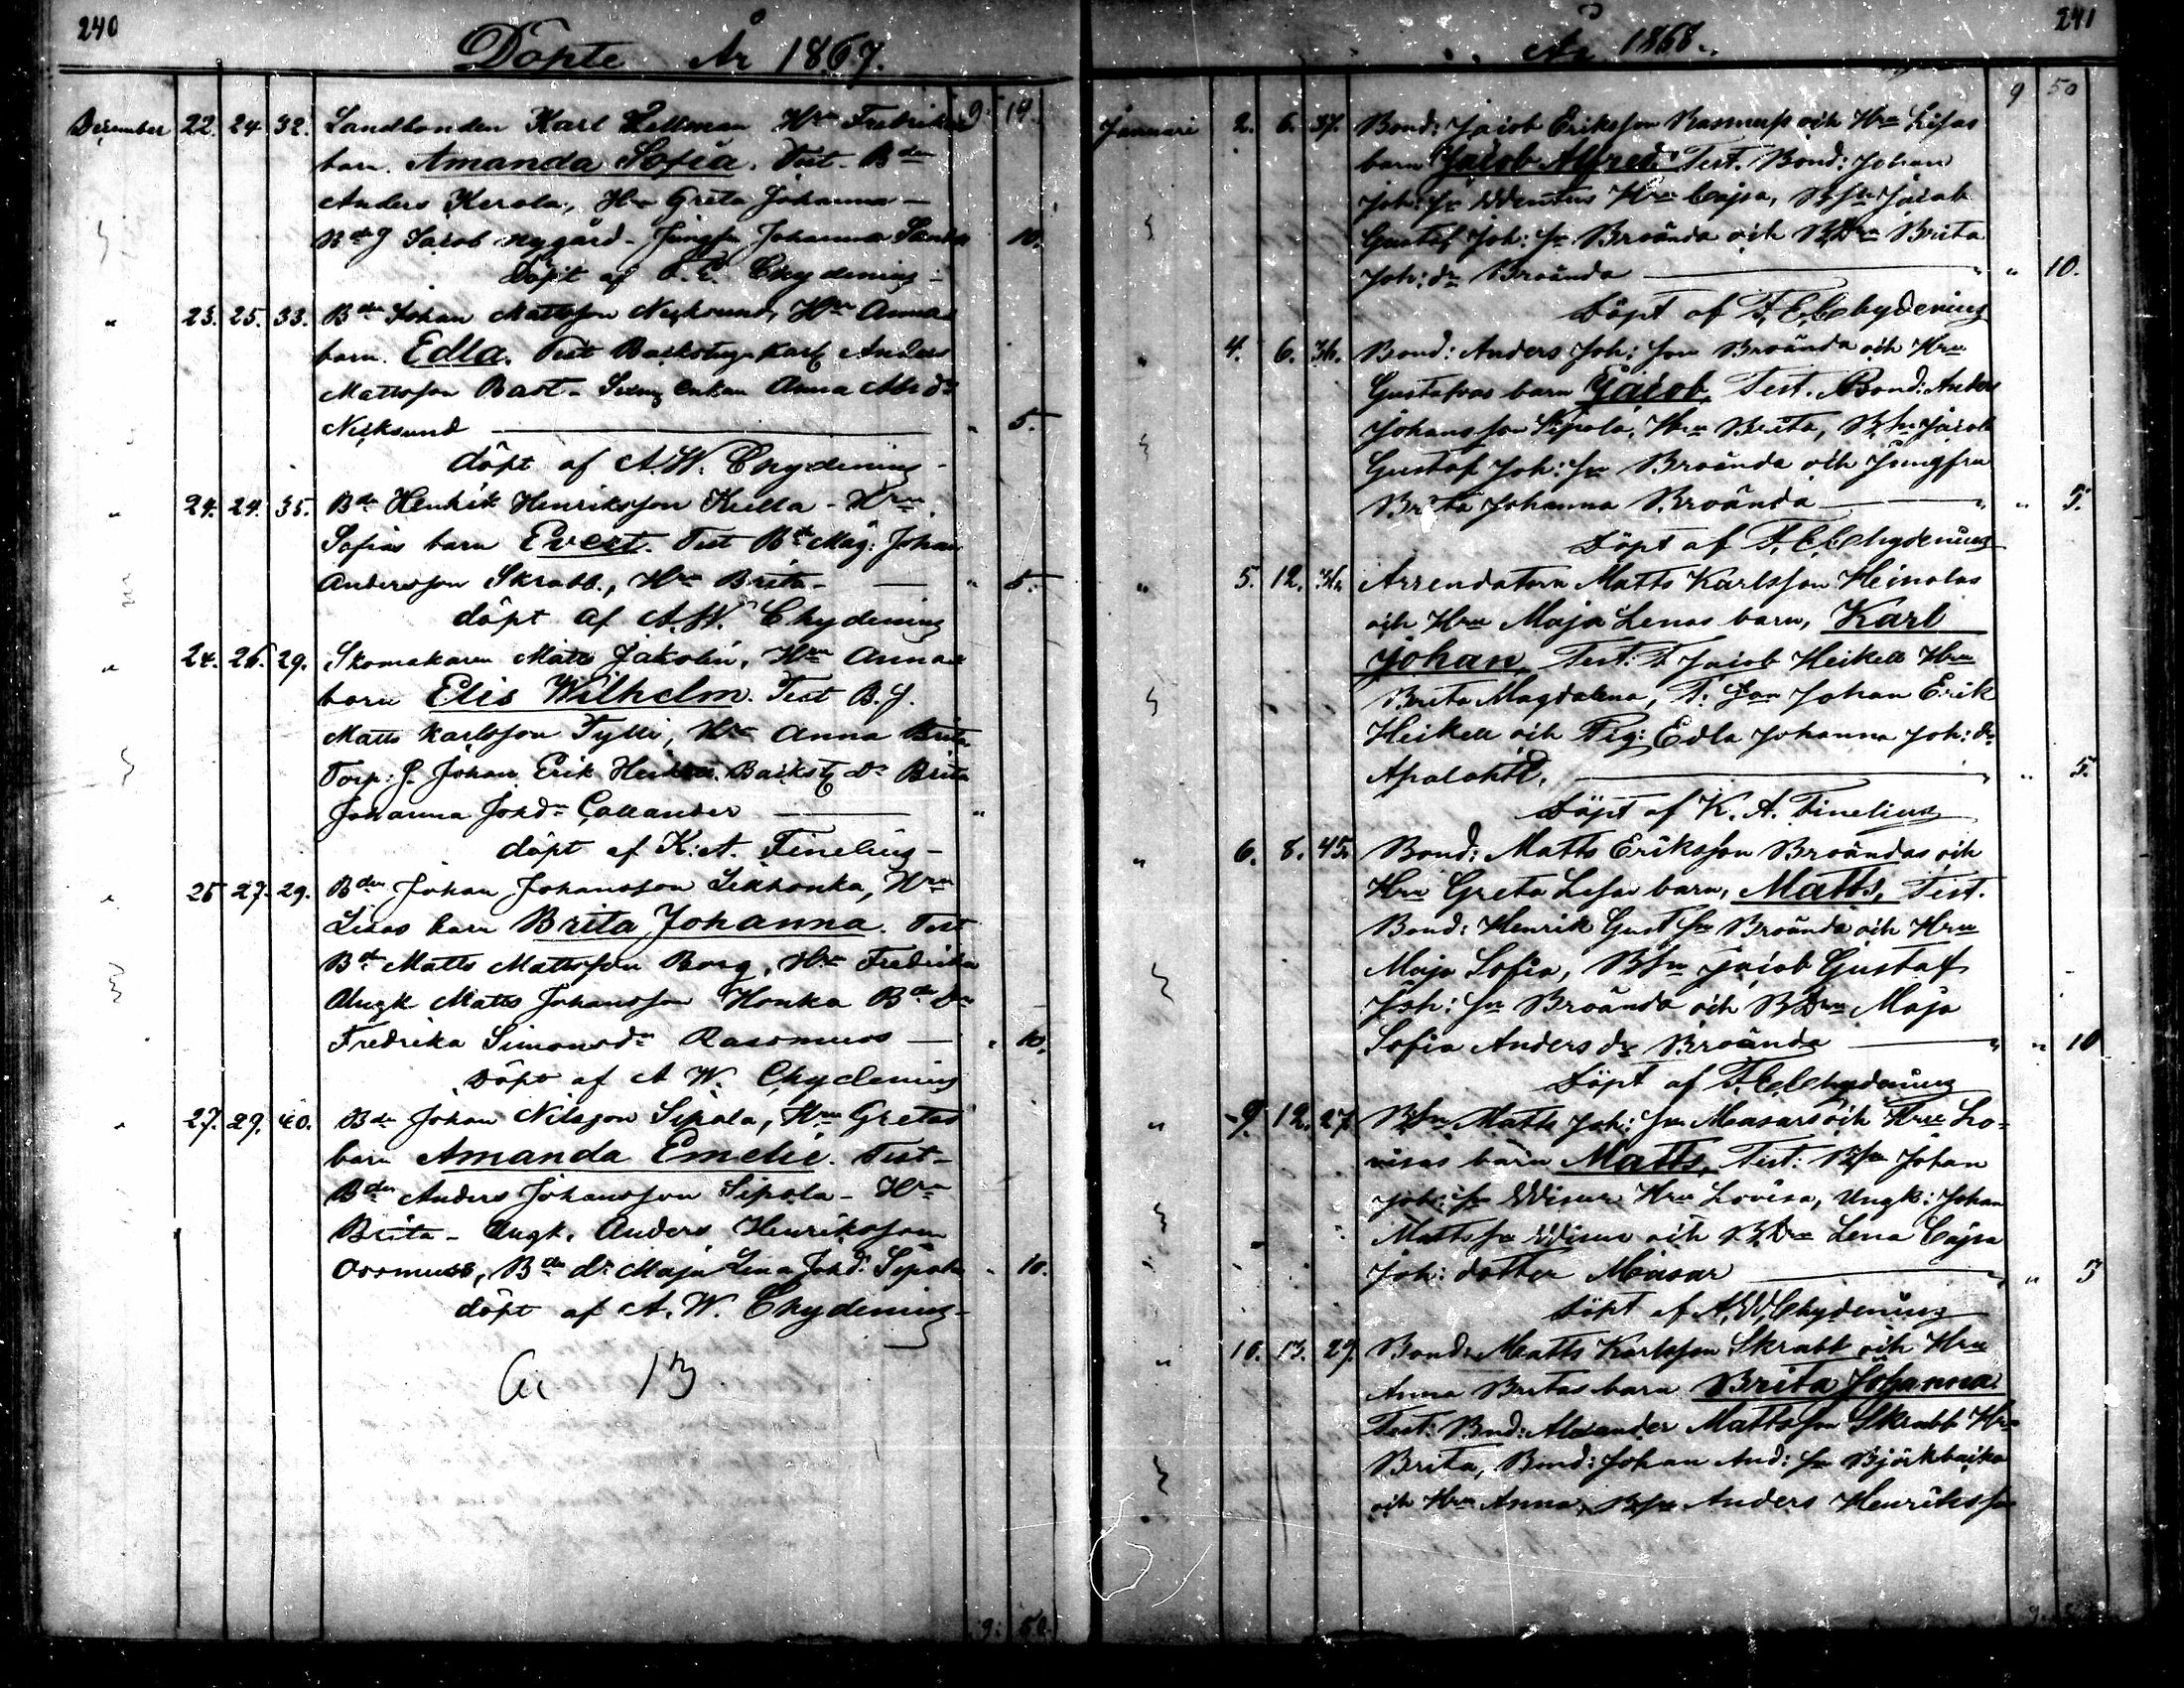 240
Döpte År 1867.
December 22. 24 32. Landbonden Karl Hellman Hru Fredrikas 9. 10.
barn. Amanda Sofia. Test. Bden
Anders Kerola, Hru Greta Johanna
Jacob Nygård - Jungfr Johanna 10.
döpt af F. E. Chydenius
" 23. 25. 33. Bdn Johan Mattsson Neiksund, Hru Annas
barn. Edla. Test Backstug. Karl Anders
Mattsson Bast - enkan Anna
Neiksund " 5.
döpt af A. W. Chydenius
" 24. 24. 35. Bdn Henrik Henriksson Kulla - Hru
Sofias barn Evert. Test Bd Måg: Johan
Andersson Skrabb., Hru Brita - " 5.
döpt af A. W. Chydenius
" 24. 26. 29. Skomakaren Matts Jakolin, Hru Annas
barn Elis Wilhelm. Test B. J.
Matts Karlsson Tylli, Hru Anna Brita
Torp: J. Johan Erik Heikell. Backst Dr Brita
Johanna Johdr Callander "
döpt af K. A. Finelius
" 25 27. 29. Bdn Johan Johansson Honka, Hru
Lisas barn Brita Johanna. Test
Bd Matts Mattsson Borg, Hru Fredrika
Ungk Matts Johansson Honka Bd Dr
Fredrika Simonsdr Rasmus " 10.
döpt af A W. Chydenius
" 27. 29. 40. Bdn Johan Nilsson Sipola, Hru Gretas
barn Amanda Emelie. Test
Bdn Anders Johansson Sipola - Hru
Brita - Ungk. Anders Henriksson
Orrmuss, Bd dr Maja Lena Johdr Sipola " 10.
döpt af A. W. Chydenius
13
9. 50.
241
År 1868.
9 50
Januari 2. 6. 37. Bond: Jacob Eriksson Rasmus och Hru Lisas
barn Jacob Alfred Test. Bond: Johan
Joh: sn Hru Cajsa, B Sn Jacob
Gustaf Joh: sn Broända och BDr Brita
Joh: dr Broända " " 10.
Döpt af F. E. Chydenius
" 4. 6. 36. Bond: Anders Joh: son Broända och Hru
Gustafvas barn Jacob, Test. Bond: Anders
Johansson Sipola, Hru Brita, B Sn Jacob
Gustaf Joh: sn Broända och Jungfru
Brita Johanna Broända " " 5.
Döpt af F. E. Chydenius
" 5. 12. 36. Arrendatorn Matts Karlsson Heinolas
och Hru Maja Lenas barn, Karl
Johan, Test: T Jacob Heikell Hru
Brita Magdalena, T: Son Johan Erik
Heikell och Pig: Edla Johanna Joh: dr
Apalahti. " " 5.
Döpt af K. A. Finelius
" 6. 8. 45. Bond: Matts Eriksson Broändas och
Hru Greta Lisas barn, Matts, Test.
Bond: Henrik Gust Sn Broända och Hru
Maja Sofia, B Sn Jacob Gustaf
Joh: sn Broända och BDr Maja
Sofia Anders dr Broända " " 10
Döpt af F. E. Chydenius
" 9. 12. 27 B Sn Matts Joh: sn Måsars och Hru Lo-
visas barn Matts, Test: B Sn Johan
Joh: sn Hru Lovisa, Ungk: Johan
Mattsson och BDr Lena Cajsa
Joh: dotter Måsar " " 5
Döpt af A. W. Chydenius
" 10. 13. 29. Bond: Matts Karlsson Skrabb och Hru
Anna Britas barn Brita Johanna
Test: Bnd: Alexander Mattsson Skrabb Hru
Brita, Bond: Johan And: sn Björkbacka
och Hru Anna, B Sn Anders Henriksson